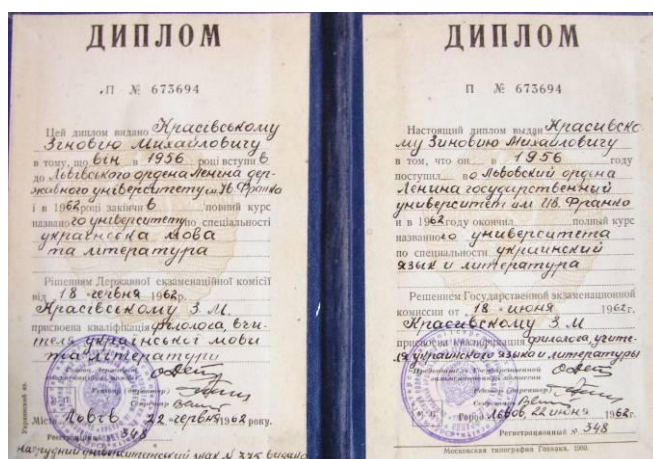 ДИПЛОМ
П № 673694
Цей диплом видано Красівському
Зиновію Михайловичу
в тому, що він в 1956 році вступив
до Львівського ордена Леніна дер-
жавного університету ім. Ів. Франка
і в 1962 році закінчив повний курс
названого університету по спеціальності
українська мова
та література
Рішенням Державної екзаменаційної комісії
від 18 червня 1962р.
Красівському З. М.
присвоєна кваліфікація філолога, вчи-
теля української мови
та літератури
Голова Державної
екзаменаційної комісії
Ректор (директор)
Секретар
Місто Львів 22 червня 1962 року.
Реєстраційний № 348
Нагрудний університетский знак № 375 выдано
Украинский яз.
ДИПЛОМ
П № 673694
Настоящий диплом выдан Красивско
му Зиновию Михайловичу
в том, что он в 1956 году
поступил во Львовский ордена
Ленина государственный
университет им Ив. Франко
и в 1962 году окончил полный курс
названного университета
по специальности украинский
язык и литература
Решением Государственной экзаменационной
комиссии от 18 июня 1962г.
Красивскому З. М
присвоена квалификация филолога, учите-
ля украинского языка и литературы
Председатель Государственной
экзаменационной комиссии
Ректор (директор)
Секретарь
Город Львов, 22 июня 1962г.
Регистрационный № 348
Московская типография Гознака. 1960.